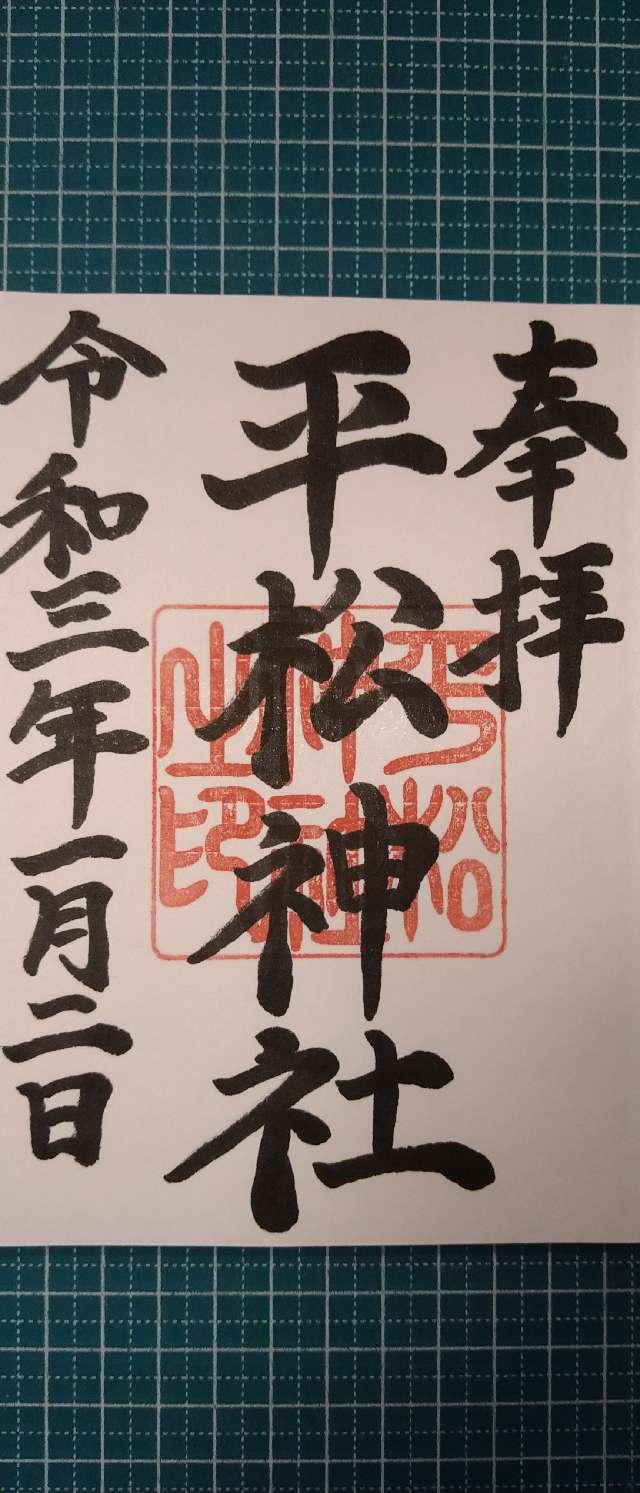 奉拝
平松神社
平松神社之印
令和三年一月二日